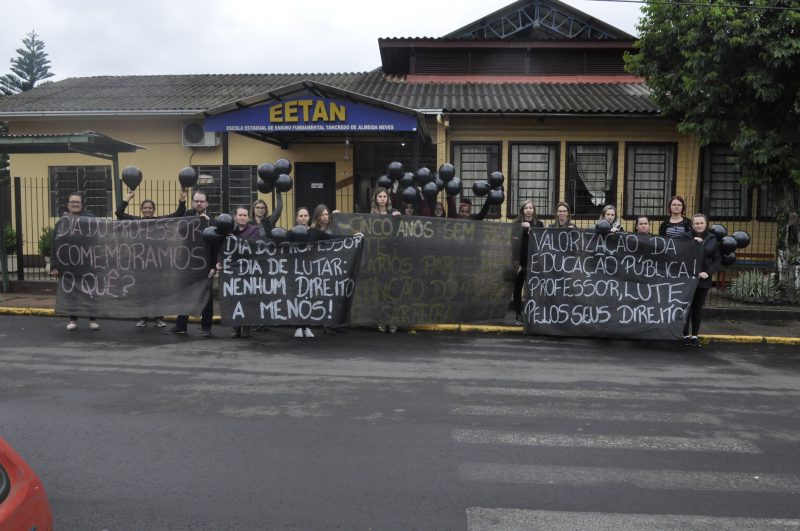 EETAN
ESCOLA ESTADUAL DE ENSINO FUNDAMENTAL TANCREDO DE ALMEIDA NEVES
DIA DO PROFESSOR
COMEMORAMOS
O QUÊ?
DIA DO PROFESSOR
É DIA DE LUTAR:
NENHUM DIREITO
A MENOS!
CINCO ANOS SEM
DO
CARREIRA
VALORIZAÇÃO DA
EDUCAÇÃO PÚBLICA!
PROFESSOR, LUTE
PELOS SEUS DIREITO